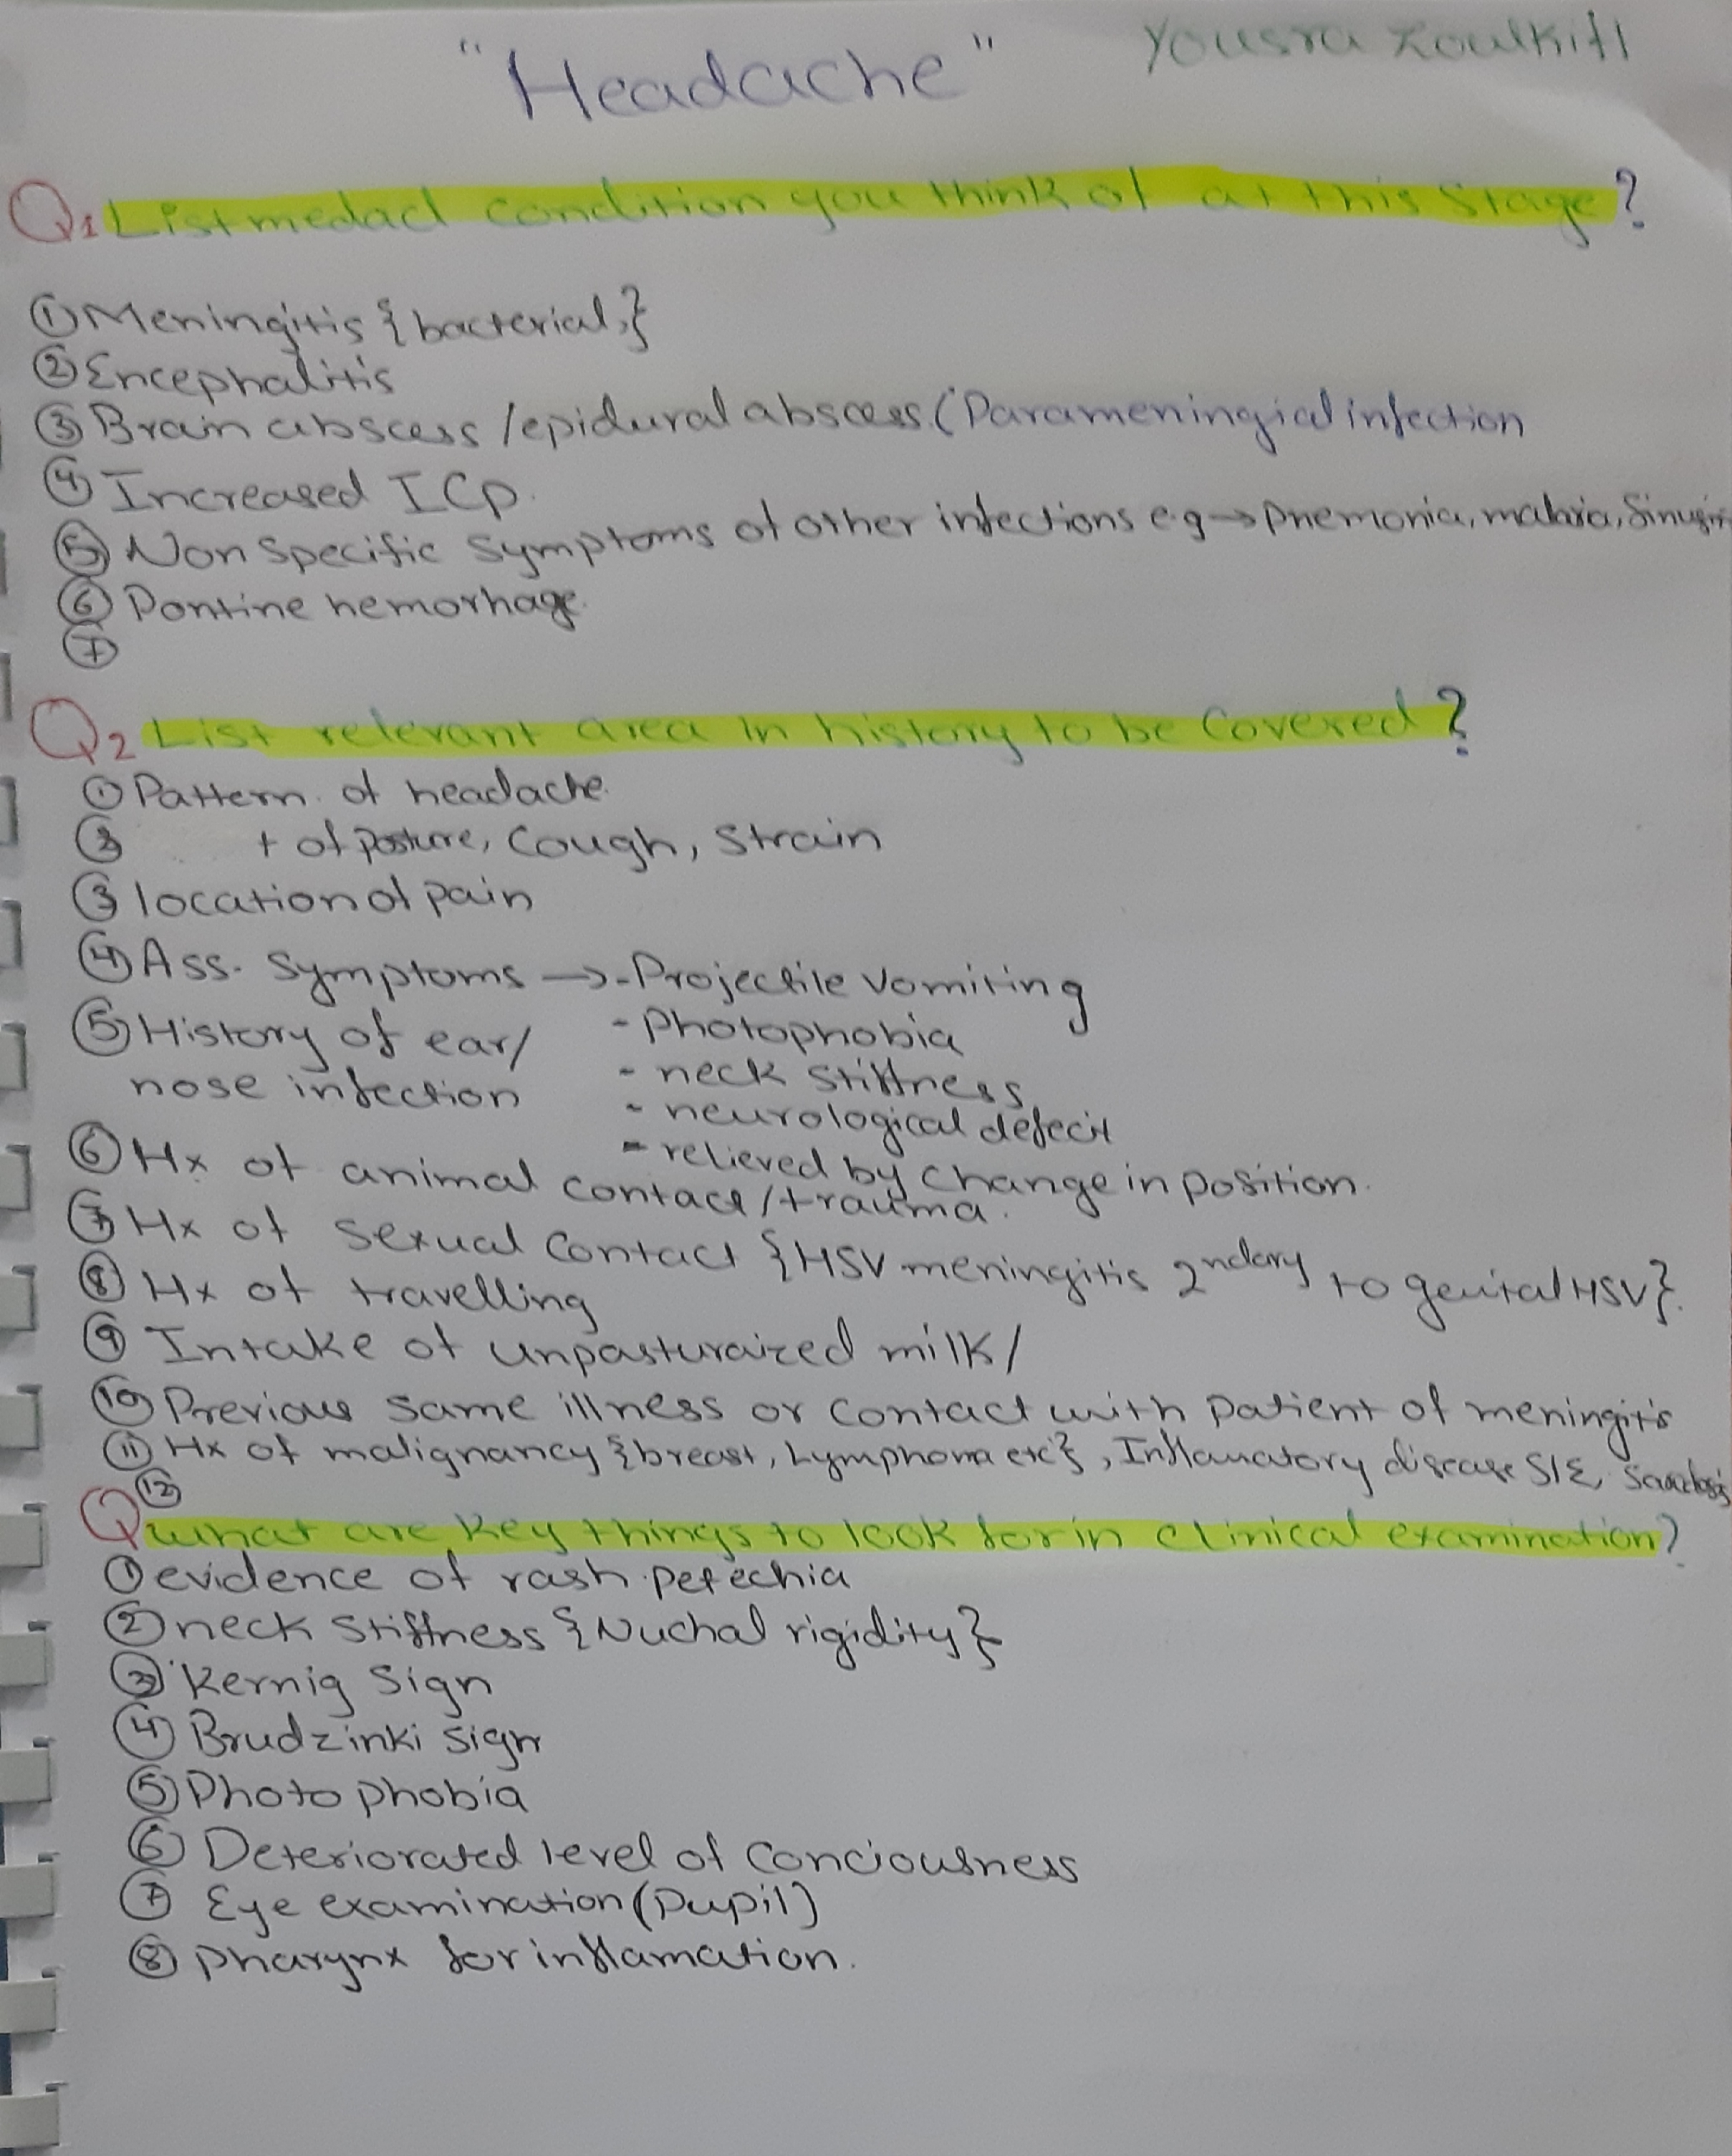 "Headache" Yousra Zoulkifl
Q1 List medacl condition you think of at this stage?
① Meningitis {bacterial,}
② Encephalitis
③ Brain abscess /epidural abscess (Parameningial infection
④ Increased ICP.
⑤ Non specific symptoms of other infections e.g → pnemonia, malaria, Sinusi
⑥ Pontine hemorhage.
⑦
Q2 List relevant area in history to be covered?
① Pattern of headache.
② + of posture, cough, strain
③ location of pain
④ Ass. symptoms → - Projectile vomiting
⑤ History of ear/ - photophobia
nose infection - neck stiffness
- neurological defecit
- relieved by change in position.
⑥ Hx of animal contact/trauma.
⑦ Hx of sexual contact {HSV meningitis 2ndary to genital HSV}.
⑧ Hx of travelling
⑨ Intake of unpasturaized milk/
⑩ Previous same illness or contact with patient of meningitis
⑪ Hx of malignancy {breast, Lymphoma etc}, Inflamatory disease SLE,
⑫
Q what are key things to look for in clinical examination?
① evidence of rash. petechia
② neck stiffness {Nuchal rigidity}
③ Kernig sign
④ Brudzinki sign
⑤ Photophobia
⑥ Deteriorated level of conciousness
⑦ Eye examination (Pupil)
⑧ pharynx for inflamation.